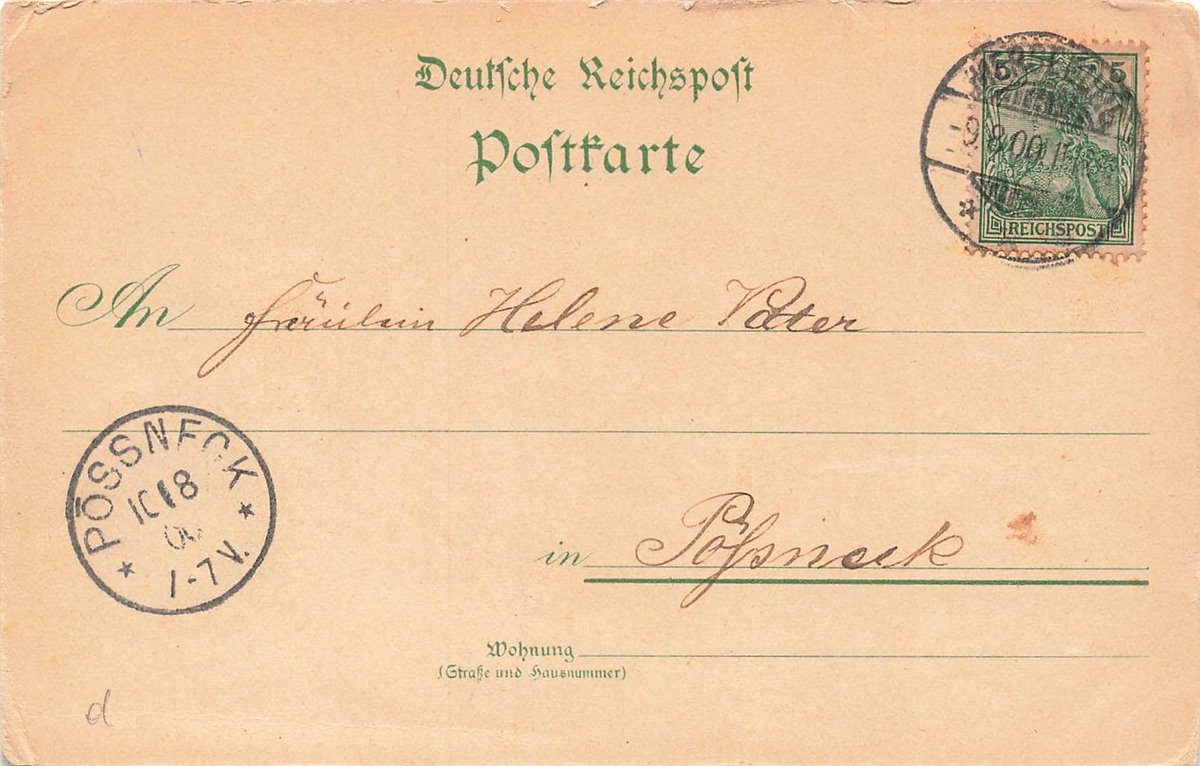 Deutsche Reichspost
Postkarte
5 5
9.8.00.
REICHSPOST
An Fräulein Helene Vater
PÖSSNECK
10 8
00
1-7 V.
in Pößneck
Wohnung
(Straße und Hausnummer)
d